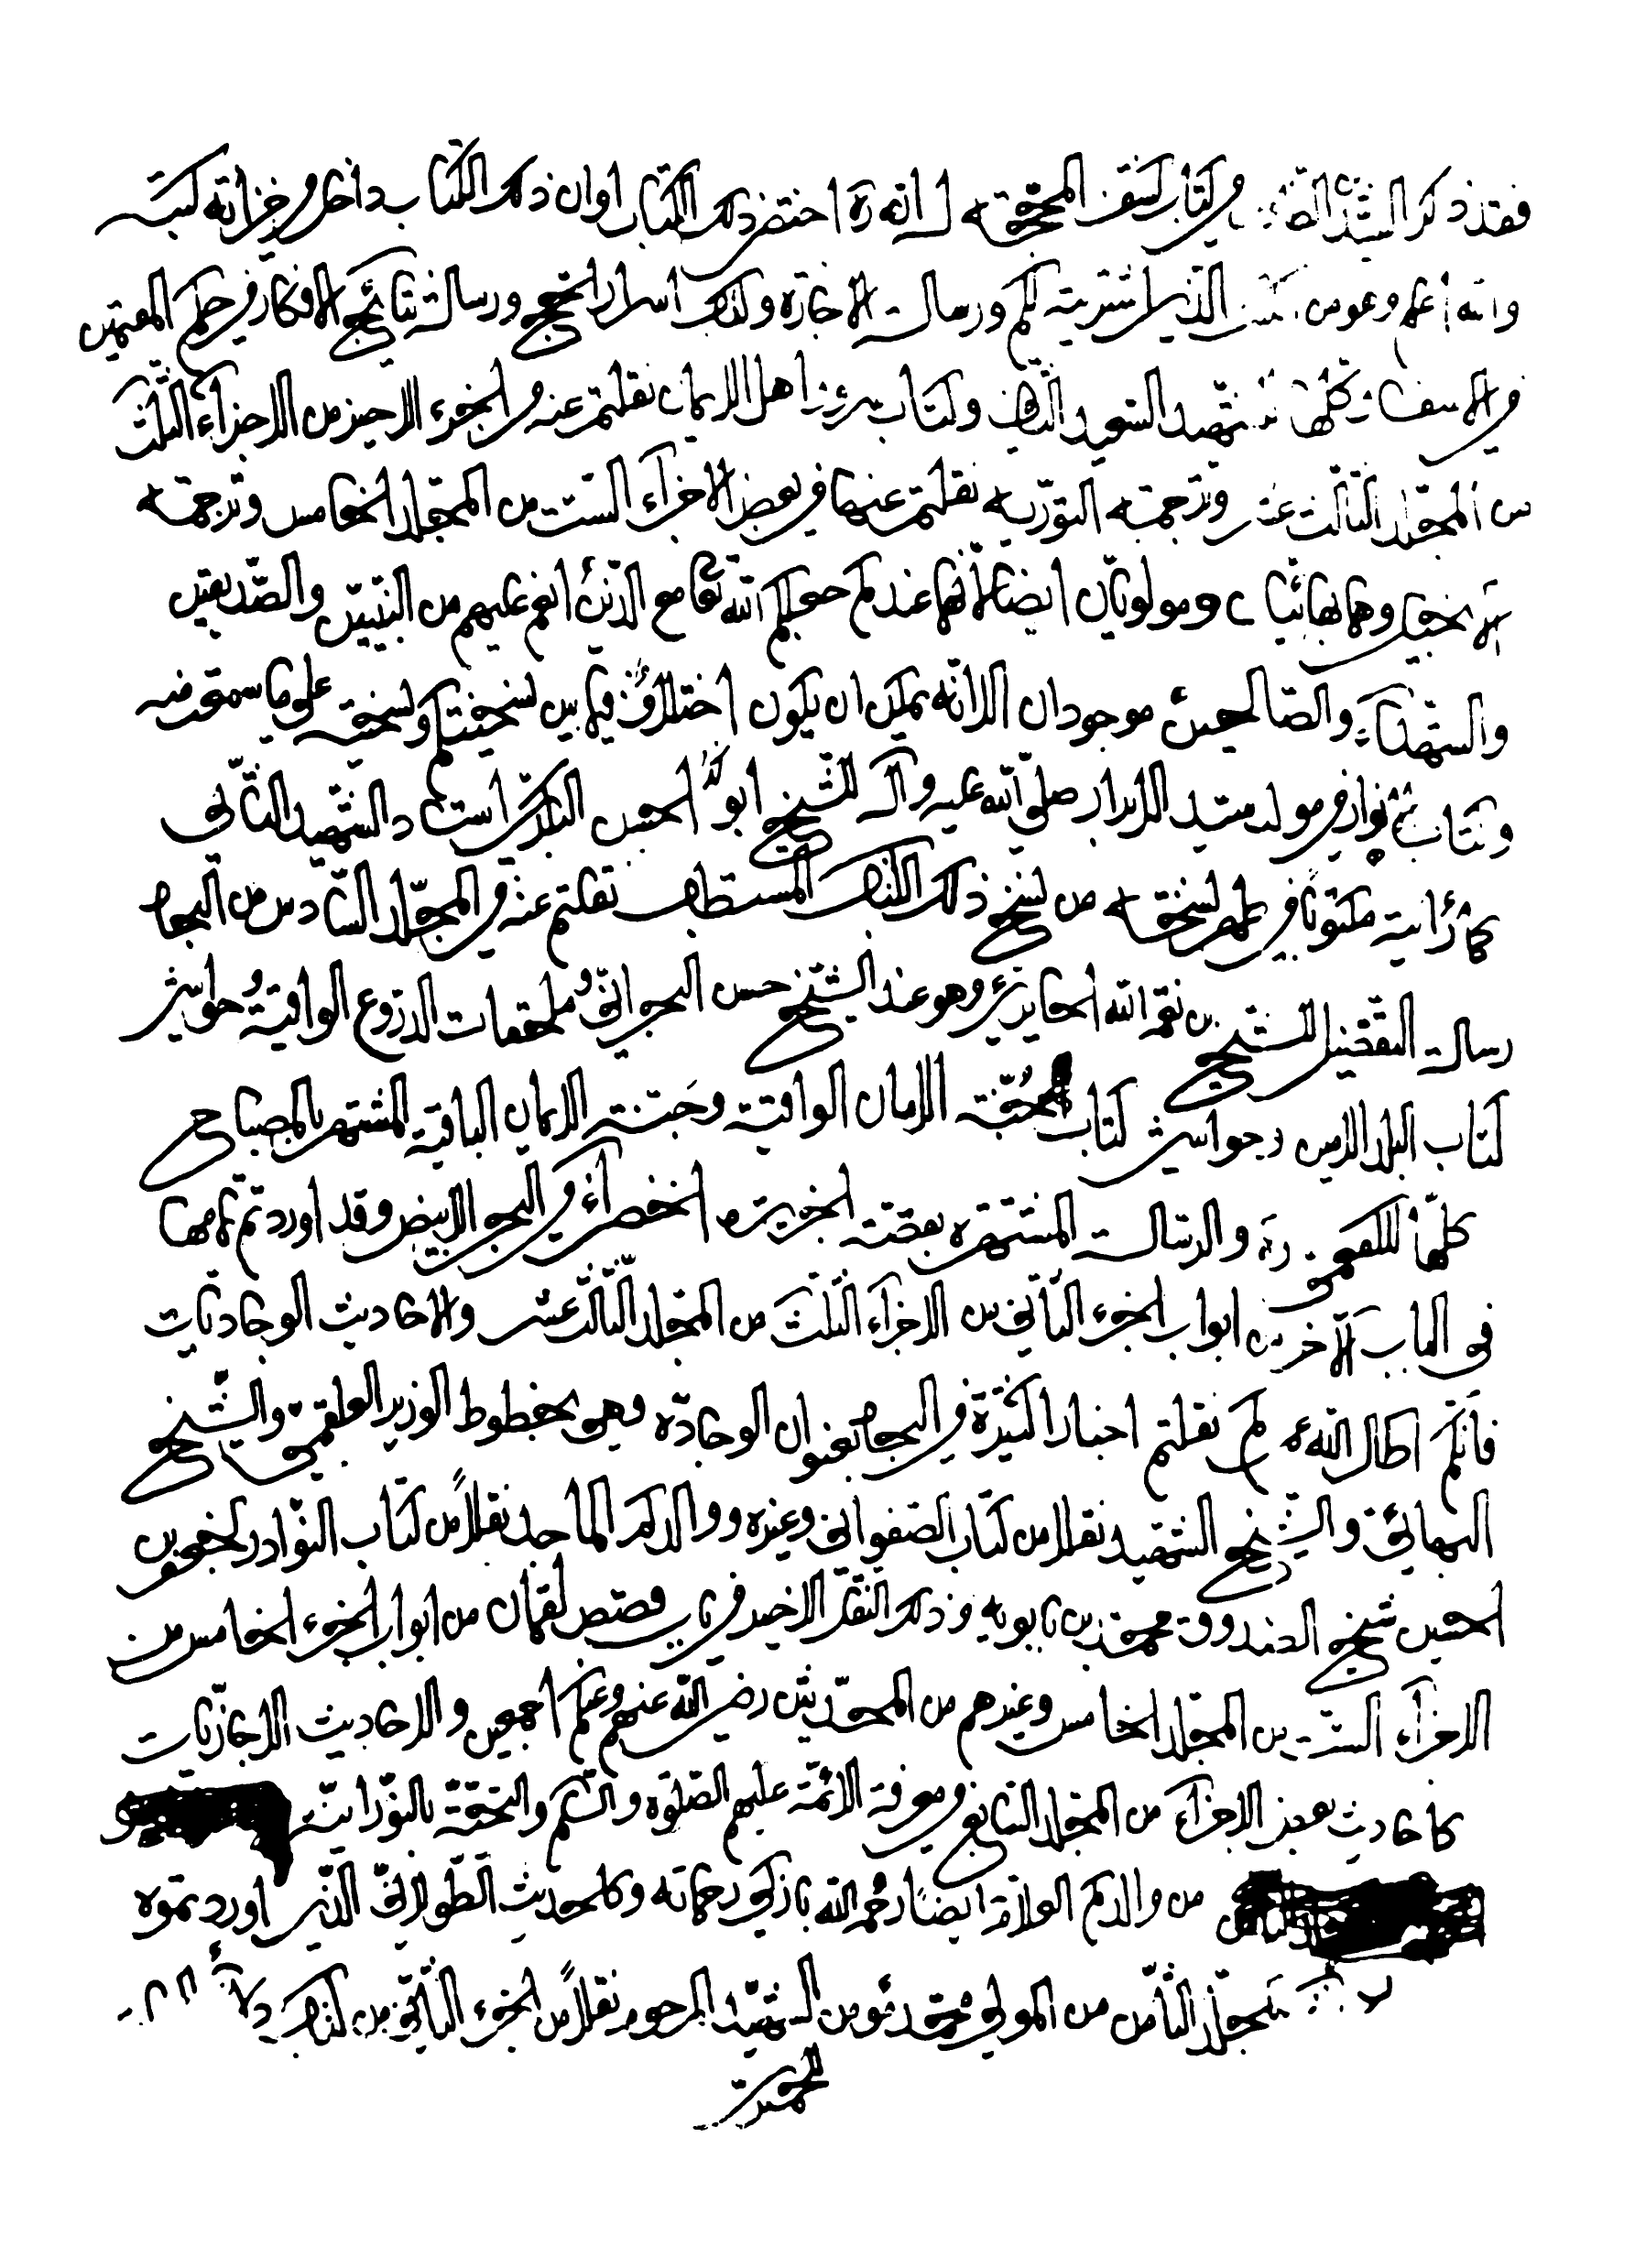 فقد ذكر السيد في كتاب كشف المحجة له انه ره اختصر ذلك الكتاب او ان ذلك الكتاب داخل في خزانة كتبه
والله اعلم وهو من الذي اشتريته لكم ورسالة الاجازة وكتاب اسرار الحج ورسالة نتائج الافكار في حكم المقيمين
في الاسفار كلها للشهيد السعيد الثاني وكتاب اهل الايمان نقلتم عنه في الجزء الاخير من الاجزاء الثلث
من المجلد الثالث عشر وترجمة التورية نقلتم عنها في بعض الاجزاء الست من المجلد الخامس وترجمة
الانجيل وهما بهائيتان ومولويتان ايضا لانهما عندكم جعلكم الله تعالى مع الذين انعم عليهم من النبيين والصديقين
والشهداء والصالحين موجودان الا انه يمكن ان يكون اختلاف فيما بين نسختيكم ونسخته على ما سمعت منه
وكتاب الانوار في مولد سيد الابرار صلى الله عليه وآله للشيخ ابو الحسين البكري استاد الشهيد الثاني
كما رأيته مكتوبا في ظهر نسخة من نسخ ذلك الكتاب المستطاب نقلتم عنه في المجلد السادس من البحار
رسالة التفضيل للشيخ بن نعمة الله الجزايري وهو عند الشيخ حسن البحراني وملحقات الدروع الواقية وحواشي
كتاب البلد الامين وحواشي كتاب جنة الامان الواقية وجنة الايمان الباقية المشتهر بالمصباح
كلها للكفعمي ره والرسالة المشتهرة بقصة الجزيرة الخضراء في البحر الابيض وقد اوردتم تمامها
في الباب الآخر من ابواب الجزء الثاني من الاجزاء الثلث من المجلد الثالث عشر والاحاديث الوجاديات
فانكم اطال الله نقلتم اخبارا كثيرة في البحار بعنوان الوجادة وهي بخطوط الوزير العلقمي والشيخ
البهائي والشيخ الشهيد نقلا من كتاب الصفواني وغيره ووالدكم الماجد نقلا من كتاب النوادر لجعفر بن
الحسين شيخ الصدوق محمد بن بابويه وذلك النقل الاخير في باب قصص لقمان من ابواب الجزء الخامس من
الاجزاء الست من المجلد الخامس وغيرهم من المحدثين رضي الله عنهم وعنكم اجمعين والاحاديث الاجازيات
كاحاديث بعض الاجزاء من المجلد السابع ومعرفة الائمة عليهم الصلوة والسلم والتحية بالنورانية
من والدكم العلامة ايضا رحمه الله بازكى رحماته وكالحديث الطولاني الذي اوردتموه
المجلد الثامن من المولى محمد مؤمن الشهيد المرحوم نقلا من الجزء الثاني من كتاب دلائل
الحميري